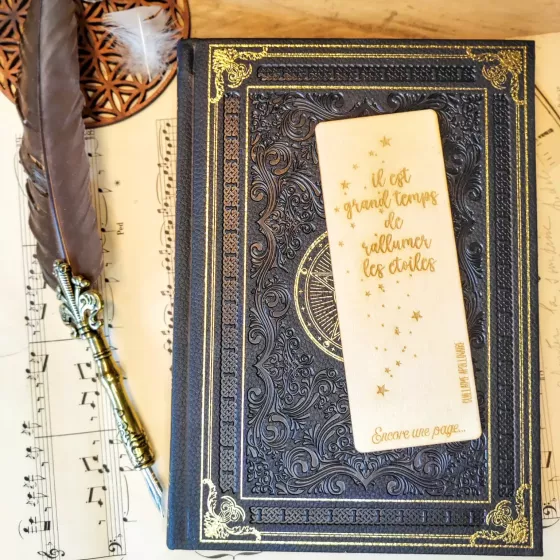 il est
grand temps
de
rallumer
les étoiles
GUILLAUME APOLLINAIRE
Encore une page...
Ped